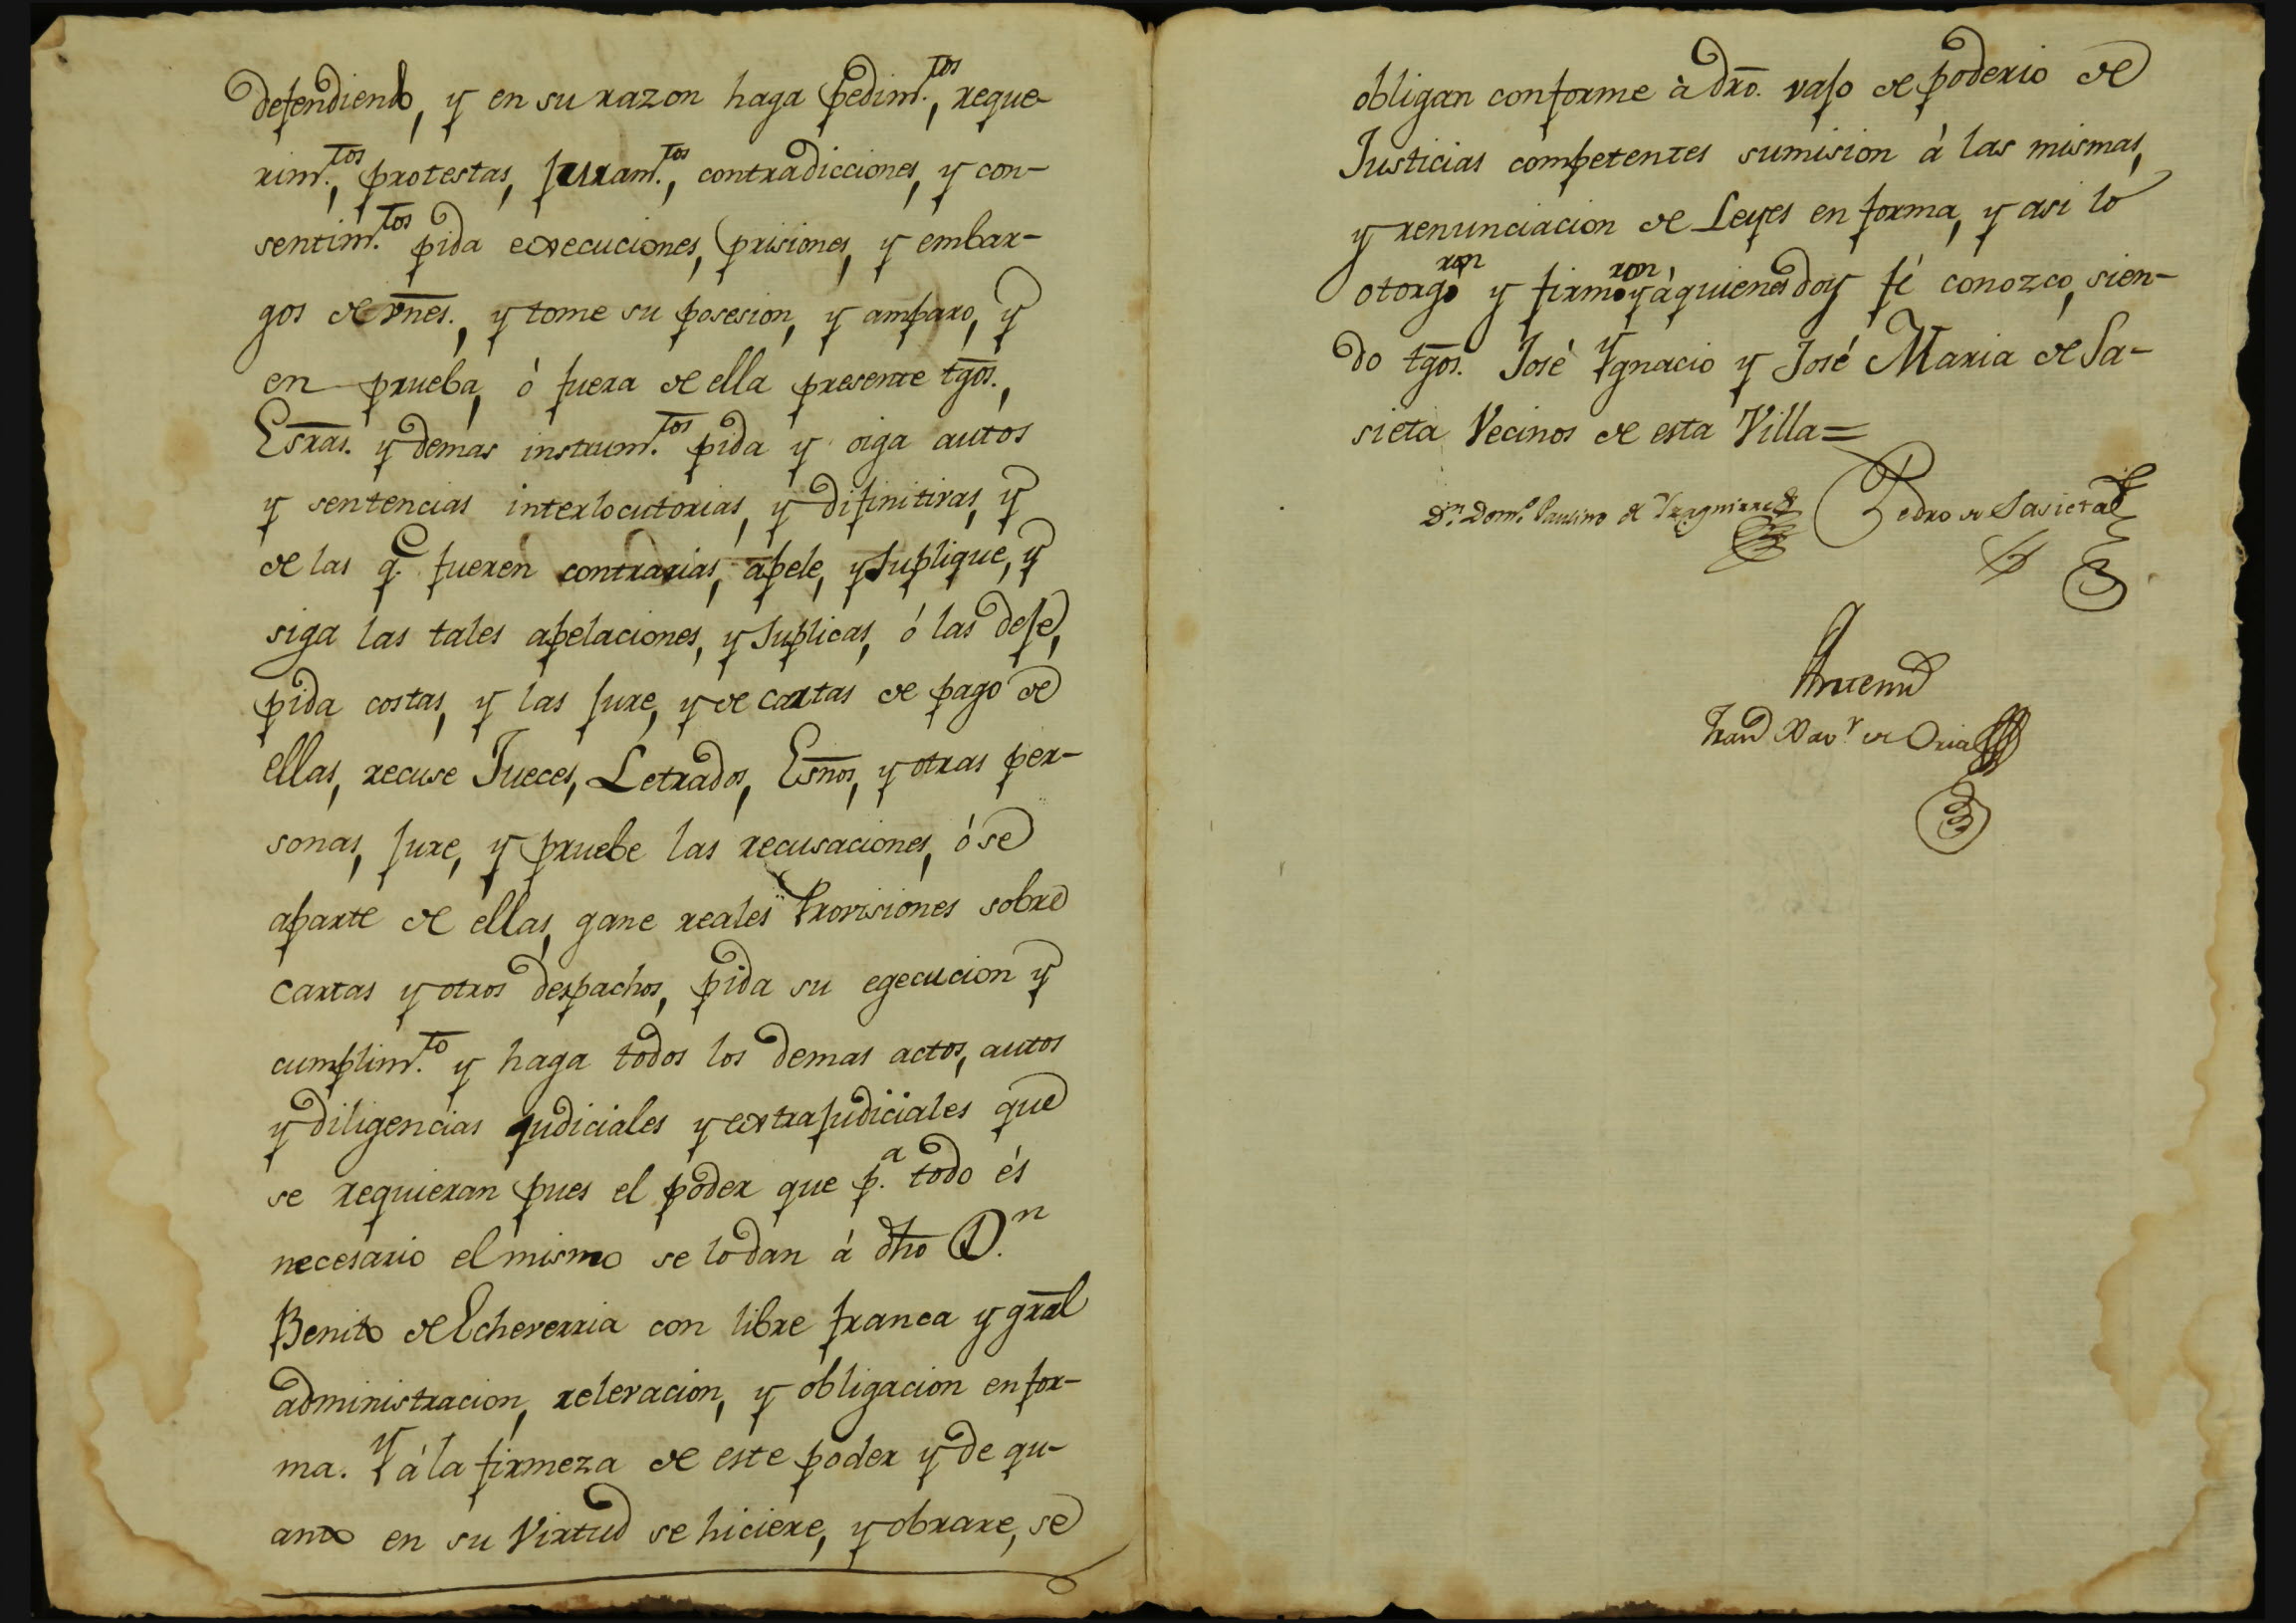 defendiendo, y en su razon haga pedim.tos, reque-
rim.tos, protestas, juram.tos, contradicciones, y con-
sentim.tos pida execuciones, prisiones, y embar-
gos de vnes., y tome su posesion, y amparo, y
en prueba, ò fuera de ella presente tgos.,
Esras. y demas instrum.tos pida y oiga autos
y sentencias interlocutorias, y difinitivas, y
de las q.e fueren contrarias, apele, y suplique, y
siga las tales apelaciones, y suplicas, ó las deje,
pida costas, y las jure, y de cartas de pago de
ellas, recuse Jueces, Letrados, Esnos, y otras per-
sonas, jure, y pruebe las recusaciones, ó se
aparte de ellas, gane reales Provisiones sobre
cartas y otros despachos, pida su egecucion y
cumplim.to y haga todos los demas actos, autos
y diligencias judiciales y extrajudiciales que
se requieran pues el poder que p.a todo és
necesario el mismo se lo dan á dho D.n
Benito de Echeverria con libre franca y gral
administracion, relevacion, y obligacion en for-
ma. Y á la firmeza de este poder y de qu-
anto en su Virtud se hiciere, y obrare, se
obligan conforme à dro. vajo de poderio de
Justicias competentes sumision á las mismas,
y renunciacion de Leyes en forma, y asi lo
otorgoron y firmoron y á quienes doy fé conozco, sien-
do tgos. José Ygnacio y José Maria de Sa-
sieta Vecinos de esta Villa=
D.n Dom.o Paulino de Pedro de Sasieta
Antemi
Fran.co Xav.r de Oria